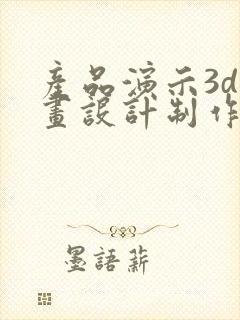 產品演示3d
畫設計制作
墨語薪